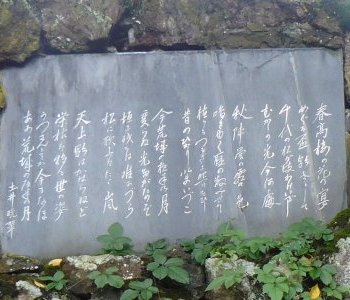 春高楼の花の宴
めぐる盃影さして
千代の松が枝わけ出でし
むかしの光今いづこ
秋陣営の霜の色
鳴き行く雁の数見せて
植うるつるぎに照りそひし
昔の光今いづこ
今荒城の夜半の月
変らぬ光たがためぞ
垣に残るは唯かづら
松に歌ふはたゞ嵐
天上影は変らねど
栄枯は移る世の姿
うつさんとてか今もなほ
あゝ荒城の夜半の月
土井晩翠